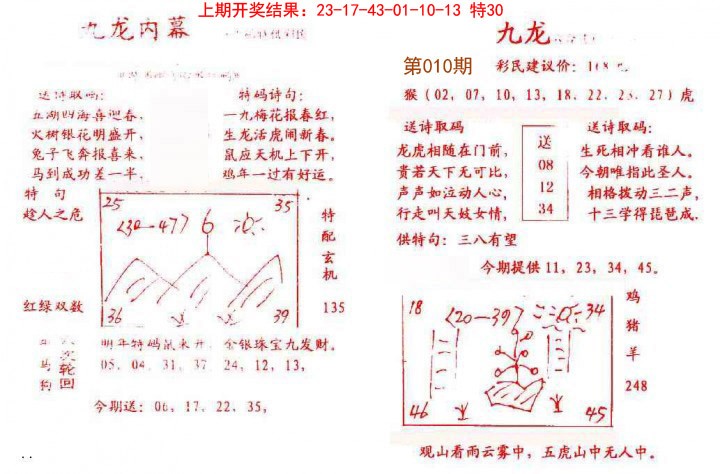 上期开奖结果：23-17-43-01-10-13 特30
九龙内幕
送诗取码：
五湖四海喜迎春，
火树银花明盛开，
兔子飞奔报喜来，
马到成功差一半．
特码诗句：
一九梅花报春红，
生龙活虎闹新春。
鼠应天机上下开，
鸡年一过有好运。
特 句
趁人之危
红绿双数
25
35
<30—47> 6
36
39
特配玄机
135
六次轮回
马
狗
明年特码鼠来开，金银珠宝九发财。
05、04、31、37、24，12，13，
今期送：06，17、22、35，
九龙
第010期
彩民建议价：
猴（02，07，10，13，18、22．23．27）虎
送诗取码
龙虎相随在门前，
贵若天下无可比，
声声如泣动人心，
行走叫天妓女情，
送
08
12
34
送诗取码：
生死相冲看谁人。
今朝唯指此圣人。
相格拨动三二声，
十三学得琵琶成．
供特句：三八有望
今期提供11，23，34，45。
18
<20—39>
34
46
45
鸡
猪
羊
248
观山看雨云雾中，五虎山中无人中。